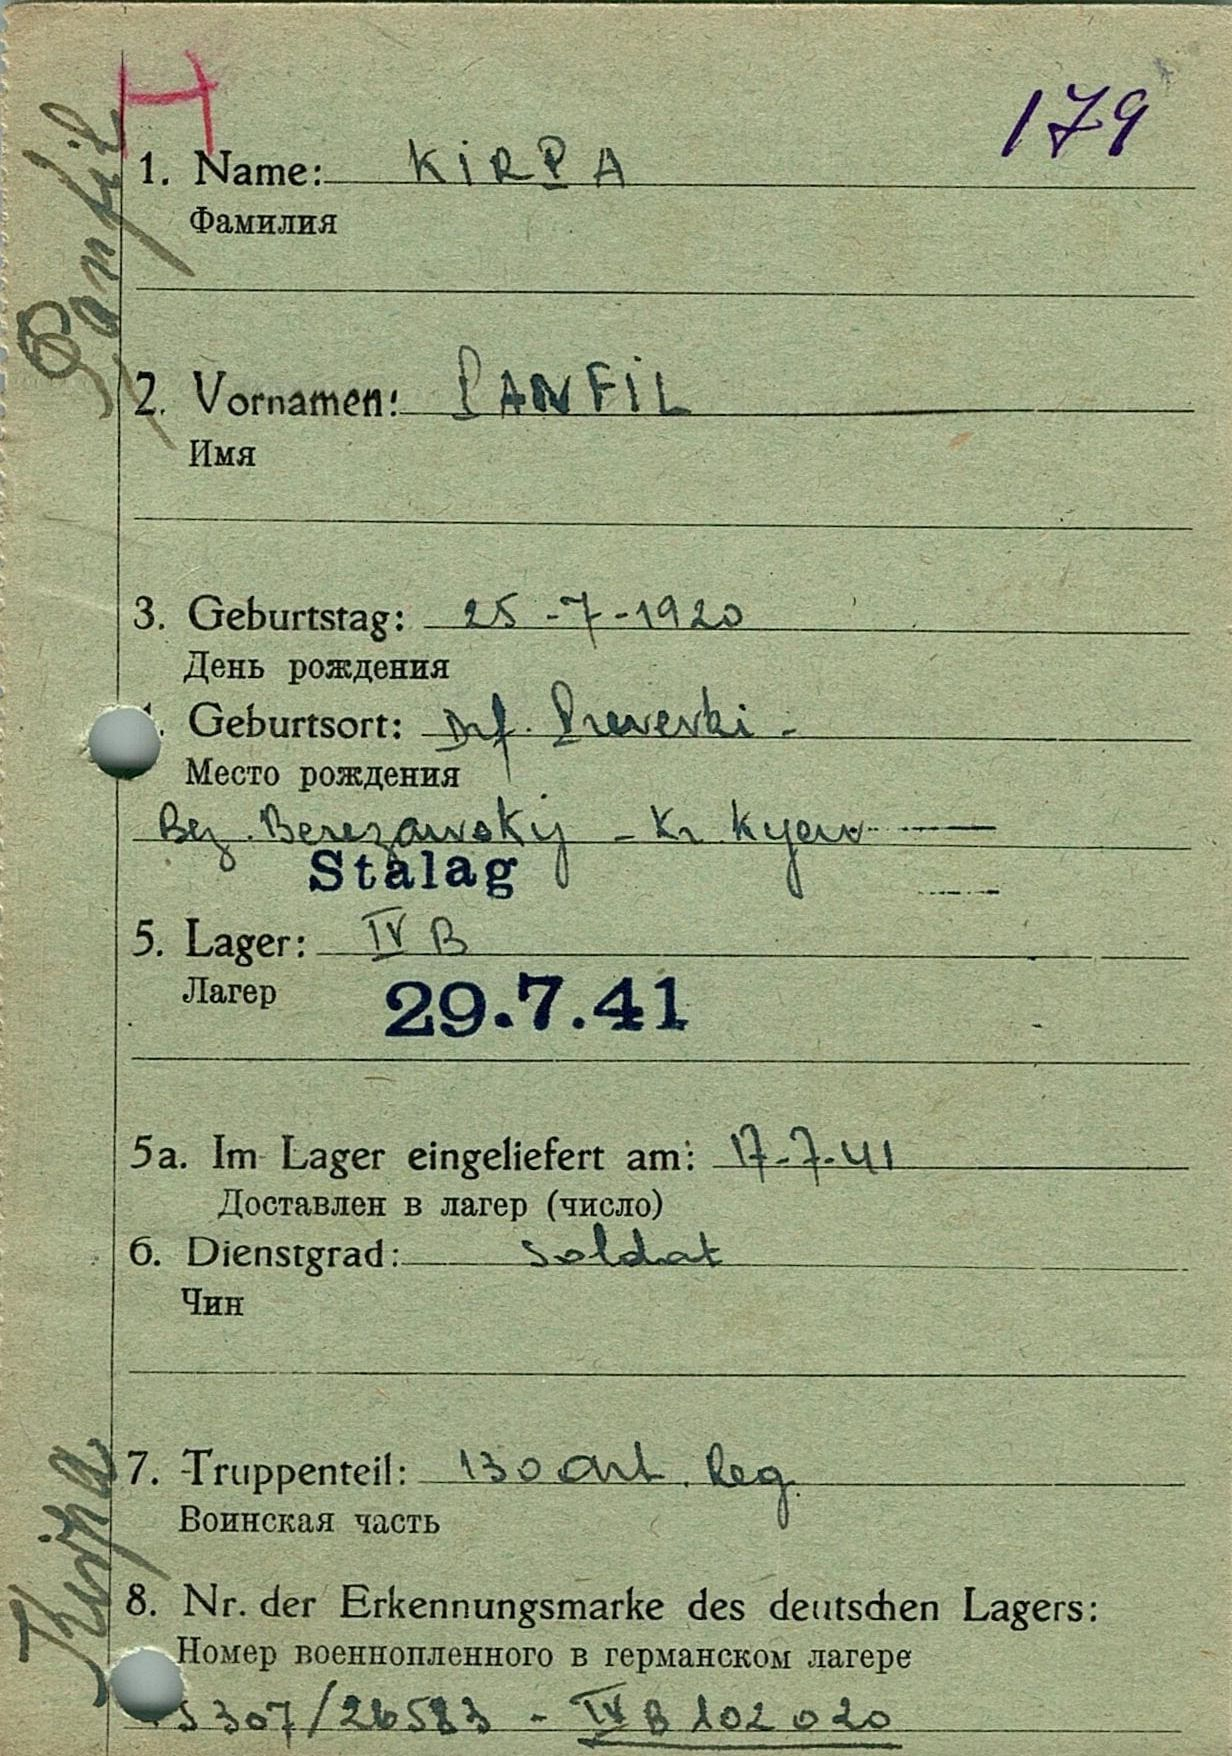 H
179
Panfil
1. Name: KIRPA
Фамилия
2. Vornamen: PANFIL
Имя
3. Geburtstag: 25-7-1920
День рождения
Geburtsort: Drf.
Место рождения
Bez. Berezawskij - Kr. Kyew
Stalag
5. Lager: IV B
Лагер
29.7.41
5a. Im Lager eingeliefert am: 17-7-41
Доставлен в лагер (число)
6. Dienstgrad: Soldat
Чин
Kirpa
7. Truppenteil: 130 Art. Reg.
Воинская часть
8. Nr. der Erkennungsmarke des deutschen Lagers:
Номер военнопленного в германском лагере
S 307/26583 - IV B 102020